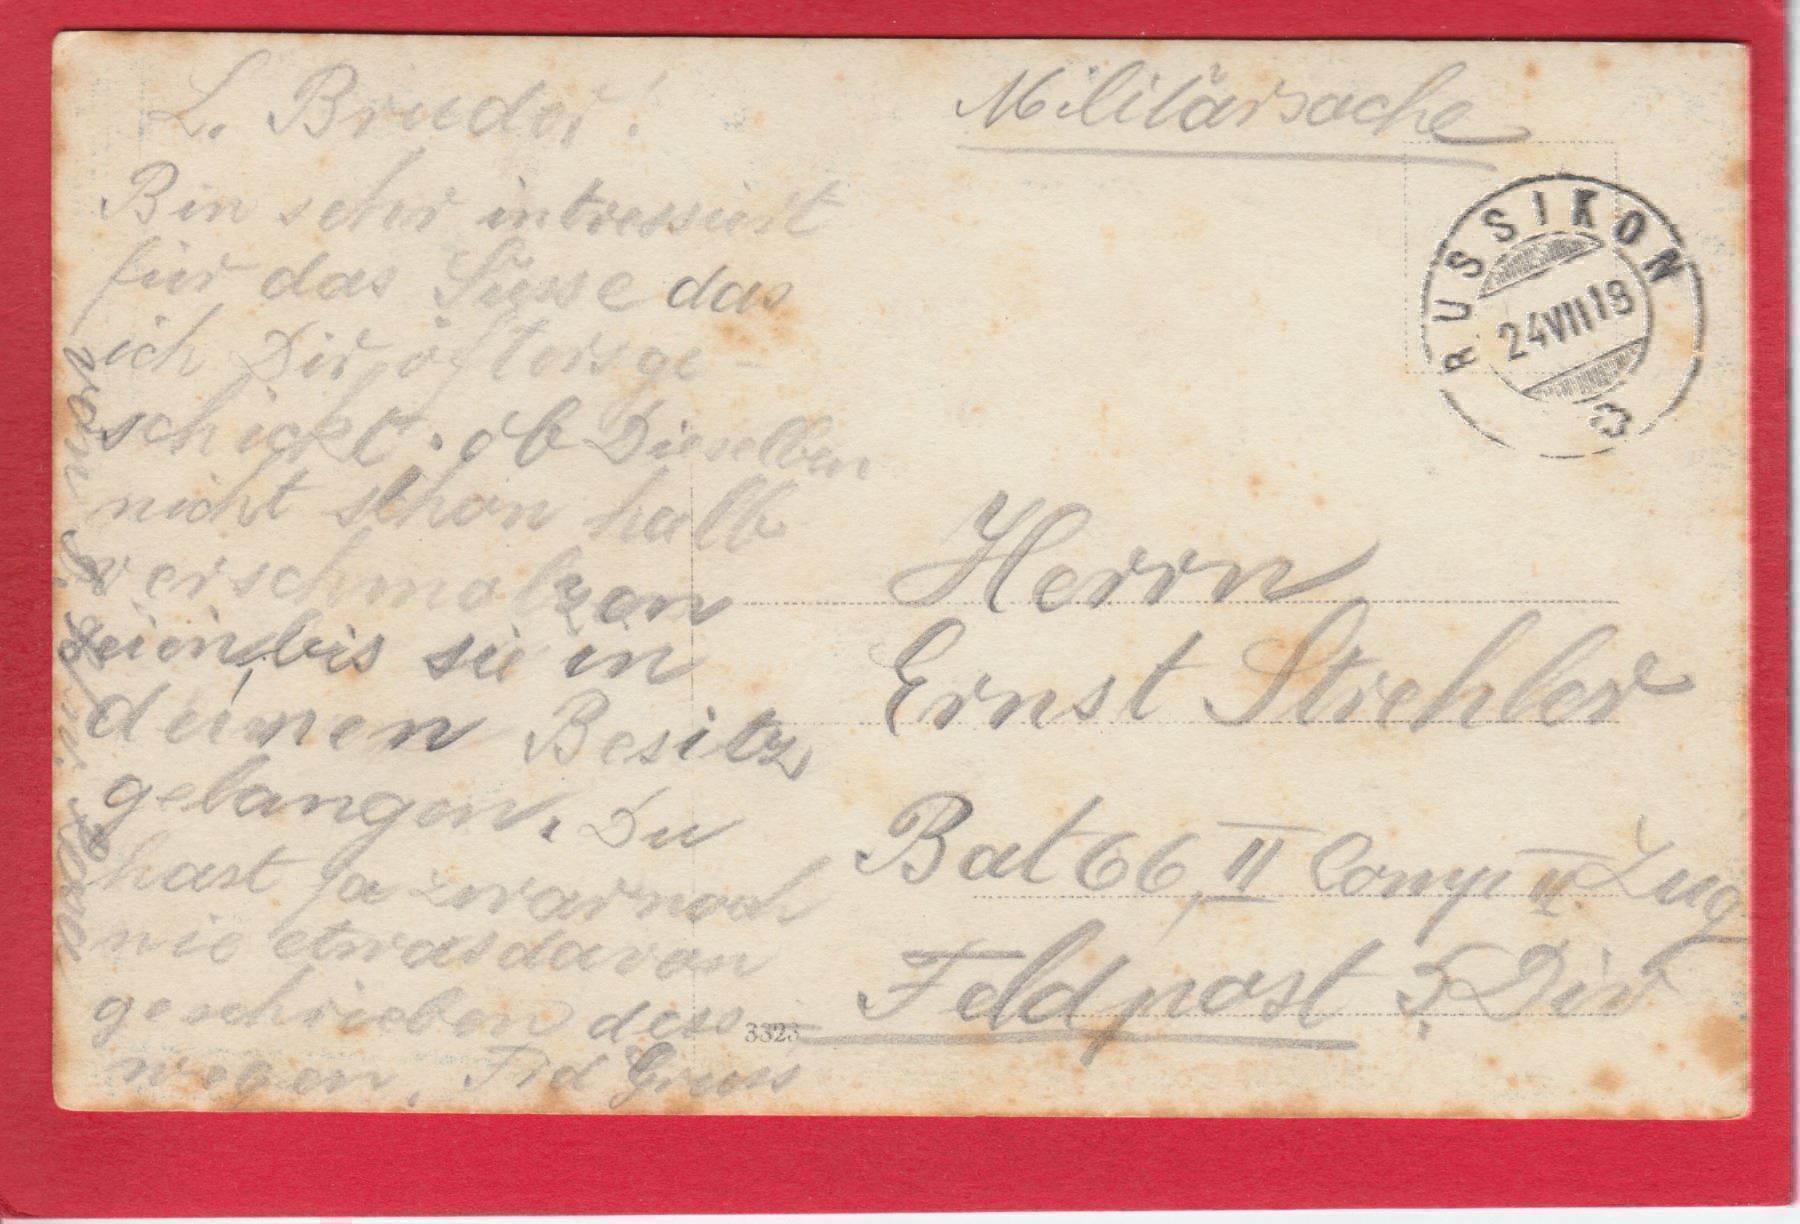 L. Bruder!
Bin sehr intressiert
für das Süsse das
ich Dir öfters ge-
schickt. ob Dieselben
nicht schon halb
verschmolzen
seien, bis sie in
deinen Besitz
gelangen. Du
hast ja zwar noch
nie etwas davon
geschrieben dess
wegen. Frd Gruss
von
Militärsache
RUSSIKON
24 VII 18
Herrn
Ernst Stiehler
Bat 66, II Comp. II. Zug
Feldpost 5. Div
3323